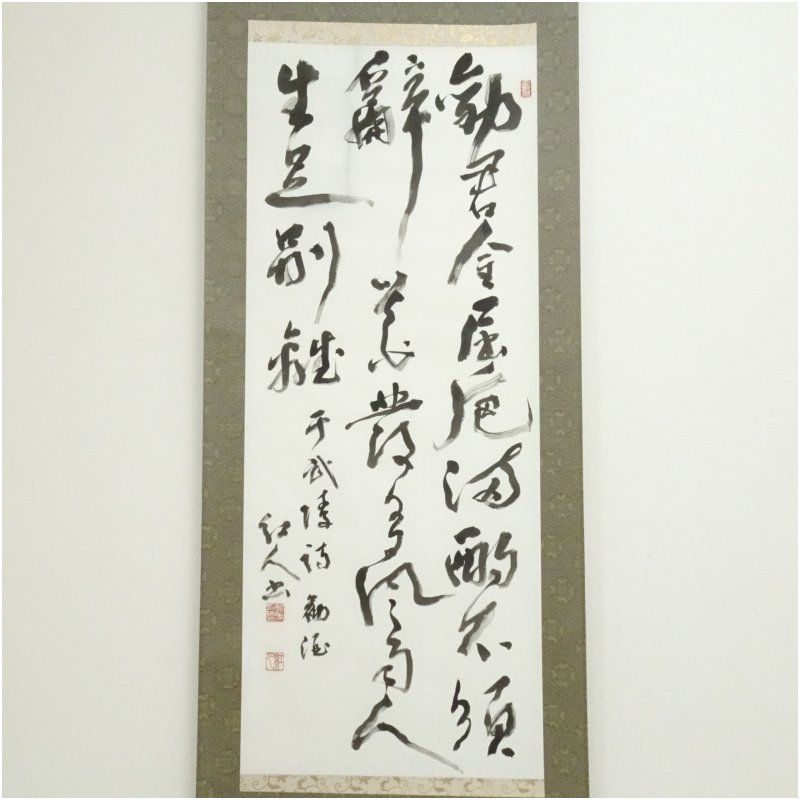 勸君金屈卮滿酌不須
辭花發多風雨人
生足別離
于武陵詩 勧酒
紅人書